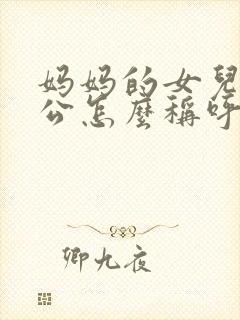 妈妈的女兒
公怎麼稱呼
卿九夜